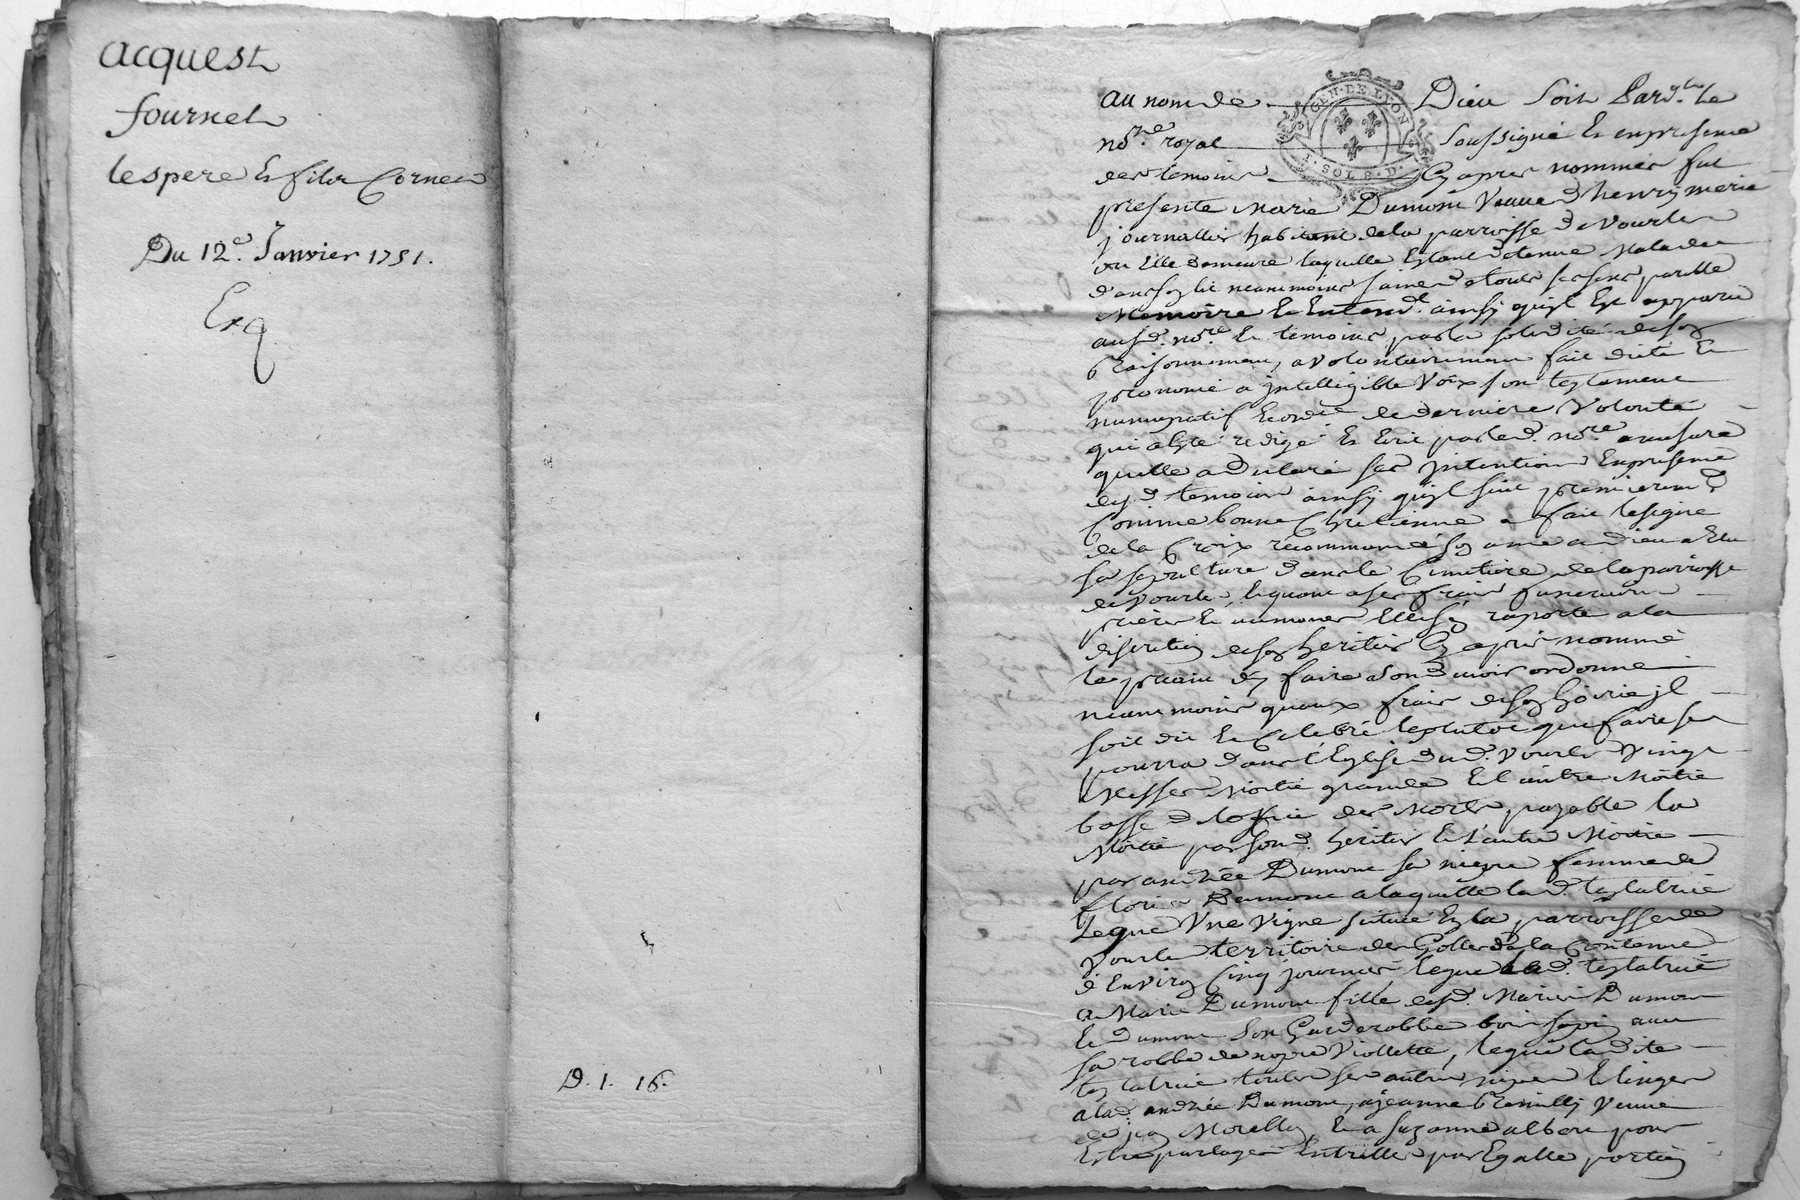 acquest
fournel
le pere et fils Corneu
Du 12e. Janvier 1751.
Exq
D. 1. 16.
GEN. DE LYON
1. SOL 8. D.
au nom de Dieu soit Pard. le
nore. royal soussigné et en presence
des temoins cy apres nommés fut
presente Marie Dumont veuve d'henry merie
journallier habitant de la parroisse de vourles
ou elle demeure laquelle estant detenue malade
dans son lit neanmoins saine de tous ses sens parolle
Memoire et Entend. ainsy qu'jl est apparu
aud. nore. et temoins par la solidité de son
raisonnement, a volontairement fait dicté et
prononcé a jntelligible voix son testament
nuncupatif et ordce de derniere volonté
qui a esté redigé et ecrit par led. nore. a mesure
quelle a declaré ses jntentions en presence
desd. temoins ainsy qu'jl suit premierem.
Comme bonne Chretienne a fait le signe
de la Croix recommandé son ame a dieu a Elu
sa sepulture dans le Cimetiere de la parroisse
de vourle, et quant a ses frais funeraires
prieres et aumones elle s'en raporte a la
discretion de son heritier cy apres nommé
le priant d'en faire son devoir ordonne
neanmoins quaux frais de son hoirie jl
soit dit et Celebré le plutot que faire se
pourra dans l'Eglise dud. vourles vingt
Messes moitié grande et l'autre moitié
basse de loffice des morts payable la
moitié par sond. heritier et l'autre moitié
par andrée Dumont sa niepce femme de
flori Dumont a laquelle lad. testatrice
legue une vigne située en la parroisse de
vourle territoire des Golles de la Contenue
d'environ Cinq journées legue lad. testatrice
a Marie Dumont fille desd. Dumont
et dumont son Garderobbe bois sapin avec
sa robbe de nopce viollette, legue la dite
testatrice toutes ses autres nipes et linges
a lad. andrée Dumont, a jeanne veuve
de jean Morel et a suzanne albert pour
estre partagé entrelles par Egalle portion